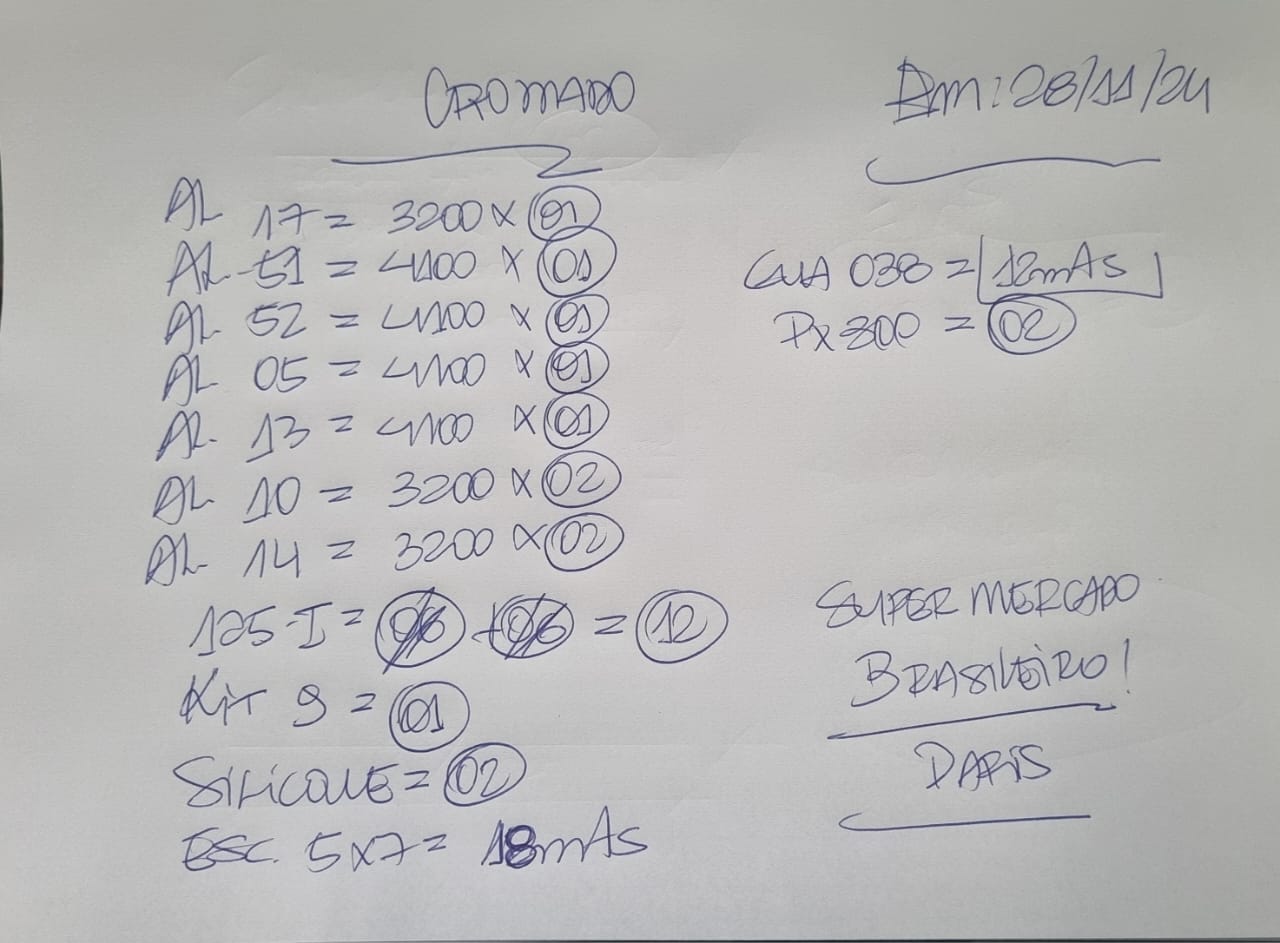 CROMADO
Em: 28/11/24
AL 17 = 3200 x 01
AL-51 = 4100 x 01
AL 52 = 4100 x 01
AL 05 = 4100 x 01
AL 13 = 4100 x 01
AL 10 = 3200 x 02
AL 14 = 3200 x 02
125-I = 06 + 06 = 12
Kit 9 = 01
SILICONE = 02
ESC. 5x7 = 18mAs
GUA 038 = 12mAs
Px 300 = 02
SUPER MERCADO
BRASILEIRO!
PARIS